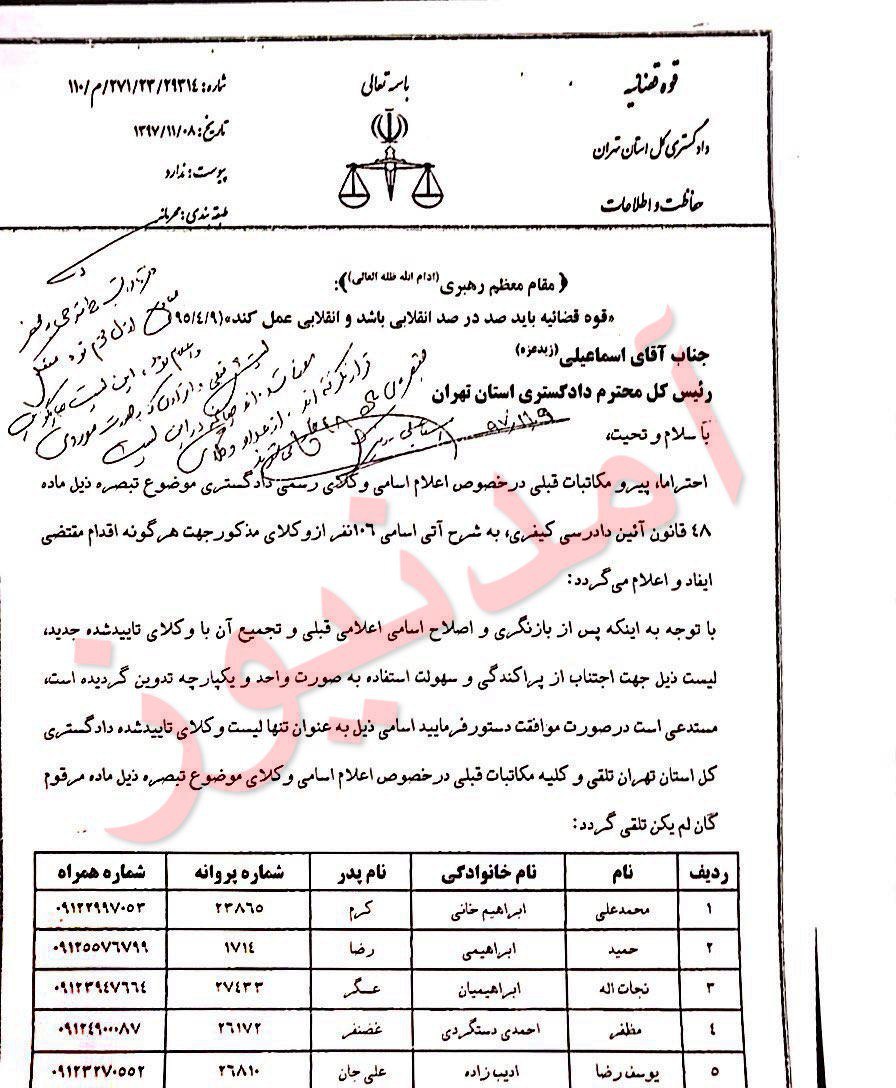 قوه قضائیه
دادگستری کل استان تهران
حفاظت و اطلاعات
باسمه تعالی
شماره: ۱۱۰/م/۲۷۱/۲۳/۲۹۳۱۴
تاریخ: ۱۳۹۷/۱۱/۰۸
پیوست: ندارد
طبقه بندی: محرمانه
﴿ مقام معظم رهبری (ادام الله ظله العالی)﴾:
«قوه قضائیه باید صد در صد انقلابی باشد و انقلابی عمل کند»(۹۵/۴/۹)
جناب آقای اسماعیلی (زیدعزه)
رئیس کل محترم دادگستری استان تهران
با سلام و تحیت،
۹۷/۱۱/۹
احتراما، پیرو مکاتبات قبلی درخصوص اعلام اسامی وکلای رسمی دادگستری موضوع تبصره ذیل ماده
۴۸ قانون آئین دادرسی کیفری، به شرح آتی اسامی ۱۰۶نفر ازوکلای مذکورجهت هرگونه اقدام مقتضی
ایفاد و اعلام می‌گردد:
با توجه به اینکه پس از بازنگری و اصلاح اسامی اعلامی قبلی و تجمیع آن با وکلای تاییدشده جدید،
لیست ذیل جهت اجتناب از پراکندگی و سهولت استفاده به صورت واحد و یکپارچه تدوین گردیده است،
مستدعی است درصورت موافقت دستورفرمایید اسامی ذیل به عنوان تنها لیست وکلای تاییدشده دادگستری
کل استان تهران تلقی و کلیه مکاتبات قبلی درخصوص اعلام اسامی وکلای موضوع تبصره ذیل ماده مرقوم
کان لم یکن تلقی گردد:
آمدنیوز
ردیف نام نام خانوادگی نام پدر شماره پروانه شماره همراه
۱ محمدعلی ابراهیم خانی کرم ۲۳۸۶۵ ۰۹۱۲۲۹۹۷۰۵۳
۲ حمید ابراهیمی رضا ۱۷۱۴ ۰۹۱۲۵۵۷۶۷۹۹
۳ نجات اله ابراهیمیان عسگر ۲۷۴۳۳ ۰۹۱۲۳۹۴۷۶۶۴
۴ مظفر احمدی دستگردی غضنفر ۲۶۱۷۲ ۰۹۱۲۴۹۰۰۰۸۷
۵ یوسف رضا ادیب زاده علی جان ۲۶۸۱۰ ۰۹۱۲۳۲۷۰۵۵۲